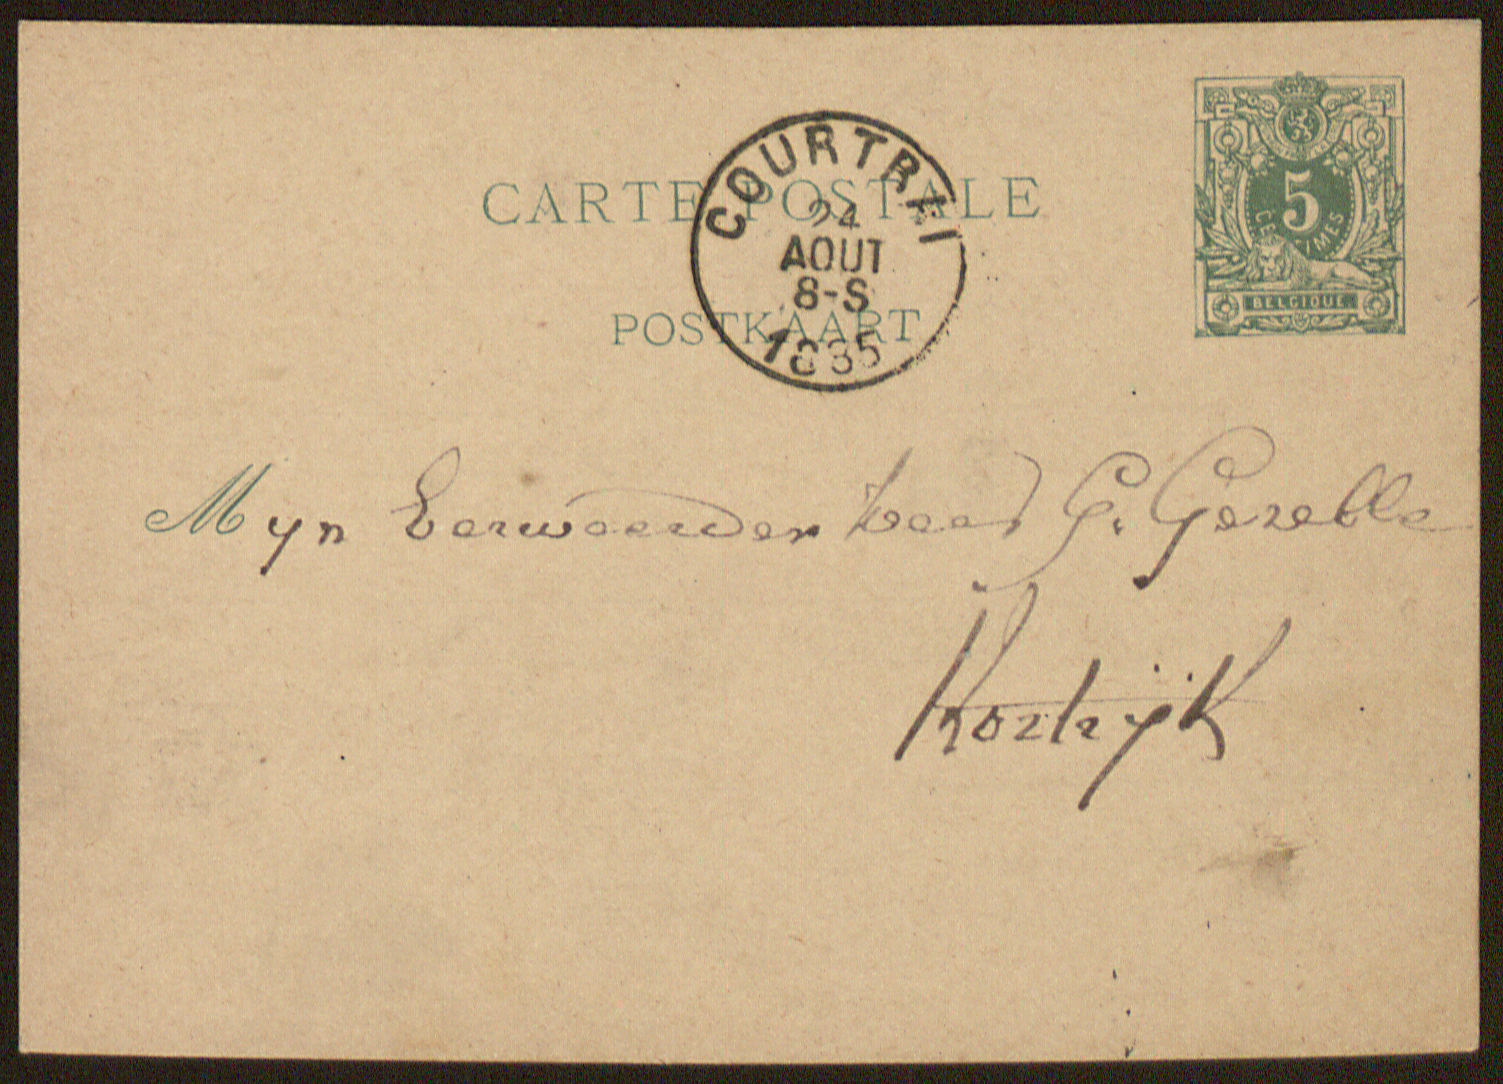 CARTE POSTALE
POSTKAART
COURTRAI
24
AOUT
8-S
1885
5
CENTIMES
BELGIQUE
Myn Eerweerden heer G. Gezelle
Kortrijk